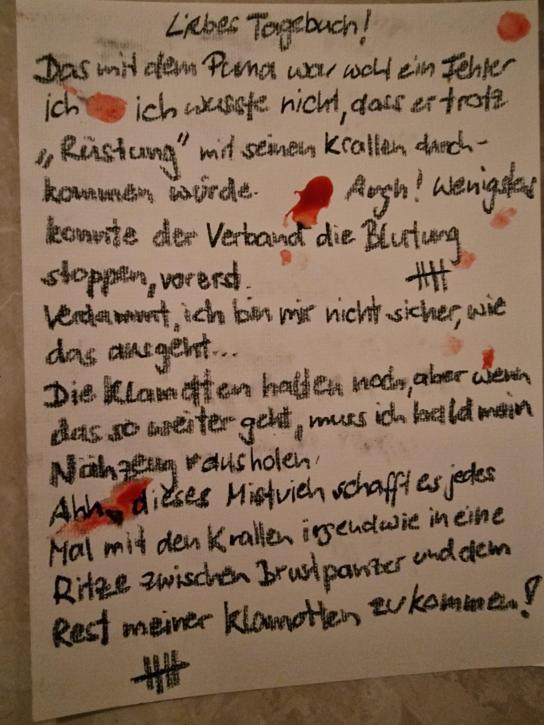 Liebes Tagebuch!
Das mit dem Puma war wohl ein Fehler
ich ich wusste nicht, dass er trotz
„Rüstung" mit seinen Krallen durch-
kommen würde. Argh! Wenigstens
konnte der Verband die Blutung
stoppen, vorerst.
Verdammt, ich bin mir nicht sicher, wie
das ausgeht...
Die Klamotten halten noch, aber wenn
das so weiter geht, muss ich bald mein
Nähzeug rausholen!
Ahh, dieses Mistvieh schafft es jedes
Mal mit den Krallen irgendwie in eine
Ritze zwischen Brustpanzer und dem
Rest meiner Klamotten zu kommen!